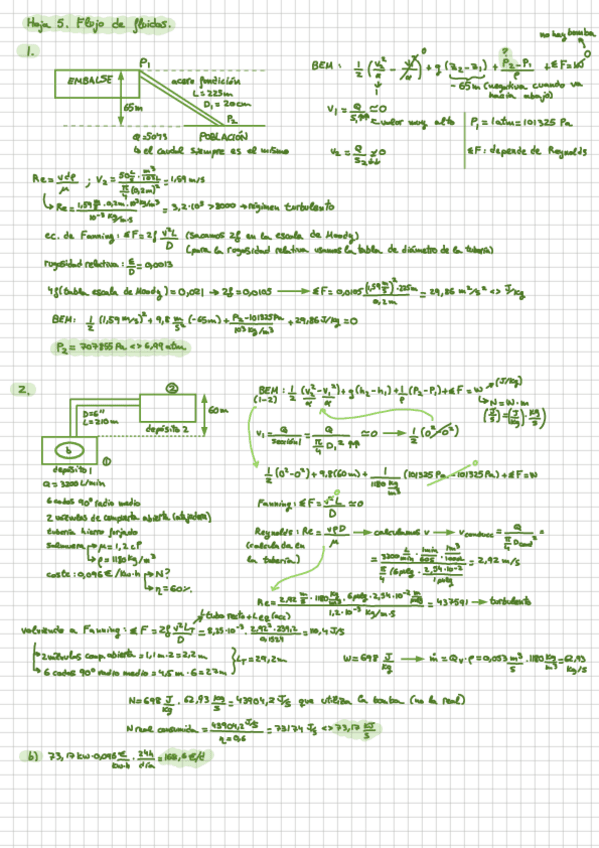 Hoja 5. Flujo de fluidos.
no hay bomba
1.
P1
EMBALSE
65m
acero fundición
L = 225m
D1 = 20cm
P2
Q = 50 l/s
POBLACIÓN
↳ el caudal siempre es el mismo
BEM: 1/2 (v2²/α - v1²/α) + g(z2-z1) + (P2-P1)/ρ + ΣF = W
-65m (negativa cuando va hacia abajo)
v1 = Q/S1 ≃ 0
valor muy alto
P1 = 1atm = 101325 Pa
ΣF: depende de Reynolds
Re = vdρ/μ ; V2 = = 1,59 m/s
↳ Re = 1,59 m/s · 0,2m · 10³ kg/m³ / 10⁻³ kg/m·s = 3,2·10⁵ > 2000 → régimen turbulento
ec. de Fanning: ΣF = 2f v²L/D (sacamos 2f en la escala de Moody)
(para la rugosidad relativa usamos la tabla de diámetro de la tubería)
rugosidad relativa: ε/D = 0,0013
4f (tabla escala de Moody) = 0,021 → 2f = 0,0105 → ΣF = 0,0105 (1,59 m/s)² · 225m / 0,2m = 29,86 m²/s² <> J/kg
BEM: 1/2 (1,59 m/s)² + 9,8 m/s² (-65m) + (P2 - 101325 Pa)/10³ kg/m³ + 29,86 J/kg = 0
P2 = 707855 Pa <> 6,99 atm
2.
②
D = 6"
L = 210m
depósito 2
60m
b
①
depósito 1
Q = 3200 L/min
6 codos 90° radio medio
2 válvulas de compuerta abierta
tubería hierro forjado
salmuera → μ = 1,2 cP
→ ρ = 1180 kg/m³
coste: 0,096 €/kw·h → N?
→ η = 60%
BEM: 1/2 (v2²/α - v1²/α) + g(h2-h1) + 1/ρ (P2-P1) + ΣF = W (J/kg)
(1-2)
↳ N = W·m
(J/s) = (J/kg)·(kg/s)
v1 = Q/sección1 = Q / (π/4 D1²) ≃ 0 → 1/2 (0²-0²)
1/2 (0²-0²) + 9,8(60m) + 1/(1180 kg/m³) (101325 Pa - 101325 Pa) + ΣF = W
Fanning: ΣF = v²L/D
Reynolds: Re = vρD/μ → calculamos v → v conducc = Q / (π/4 D cond²) =
(calculada en
la tubería)
= 3200 L/min · 1min/60s · 1m³/1000L / (π/4 (6 pulg · 2,54·10⁻² m/1 pulg)²) = 2,92 m/s
Re = 2,92 m/s · 1180 kg/m³ · 6 pulg · 2,54·10⁻² m/pulg / 1,2·10⁻³ kg/m·s = 437591 → turbulento
tubo recto + Leq (acc)
volviendo a Fanning: ΣF = 2f v²LT/D = 8,25·10⁻³ · 2,92² · 239,2 / 0,1524 = 110,4 J/s
→ 2 válvulas comp. abierta = 1,1m·2 = 2,2m
→ 6 codos 90° radio medio = 4,5m·6 = 27m
LT = 29,2m
W = 698 J/kg → ṁ = Qv·ρ = 0,053 m³/s · 1180 kg/m³ = 62,93 kg/s
N = 698 J/kg · 62,93 kg/s = 43904,2 J/s que utiliza la bomba (no la real)
N real consumida = 43904,2 J/s / η = 0,6 = 73174 J/s <> 73,17 kJ/s
b) 73,17 kw · 0,096 €/kw·h · 24h/día = 168,6 €/d